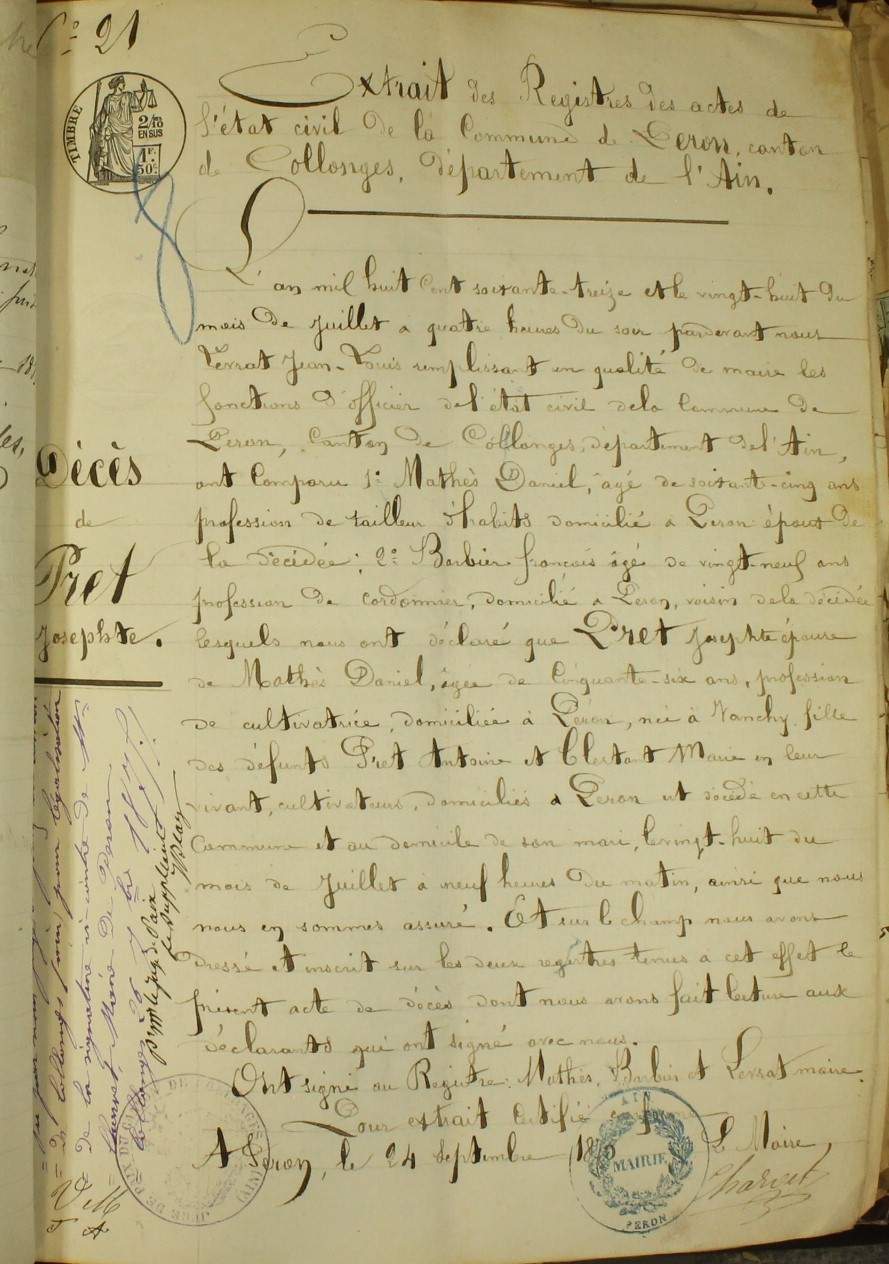 N° 21
TIMBRE
2/10
EN SUS
1F.
50c
Extrait des Registres des actes de
l'état civil de la Commune de Peron, canton
de Collonges, département de l'Ain.
L'an mil huit cent soixante-treize et le vingt-huit du
mois de Juillet a quatre heures du soir pardevant nous
Levrat Jean-Louis remplissant en qualité de maire les
fonctions d'officier de l'état civil de la Commune de
Peron, Canton de Collonges, département de l'Ain,
ont Comparu 1° Mathès Daniel, âgé de soixante-cinq ans
profession de tailleur d'habits domicilié a Peron époux de
la décédée; 2° Barbier françois âgé de vingt-neuf ans
profession de cordonnier, domicilié a Peron, voisin de la décédée
lesquels nous ont déclaré que Pret Josephte épouse
de Mathès Daniel, âgée de Cinquante-six ans, profession
de cultivatrice, domiciliée à Péron, née à Vanchy fille
des défunts Pret Antoine et Marie en leur
vivant, cultivateurs, domiciliés a Peron est décédé en cette
Commune et au domicile de son mari, le vingt-huit du
mois de Juillet à neuf heures du matin, ainsi que nous
nous en sommes assuré. Et sur le champ nous avons
dressé et inscrit sur les deux registres tenus a cet effet le
présent acte de décès dont nous avons fait lecture aux
déclarants qui ont signé avec nous.
Ont signé au Registre: Mathès, Barbier et Levrat maire.
Pour extrait certifié
A Peron, le 24 Septembre Le Maire,
Charvet
AIN
MAIRIE
PERON
Décès
de
Pret
Josephte.
pour légalisation
de la signature ci-contre de Mr
Charvet, Maire de Peron
Collonges, 26
pr Mr le juge de Paix
le suppléant